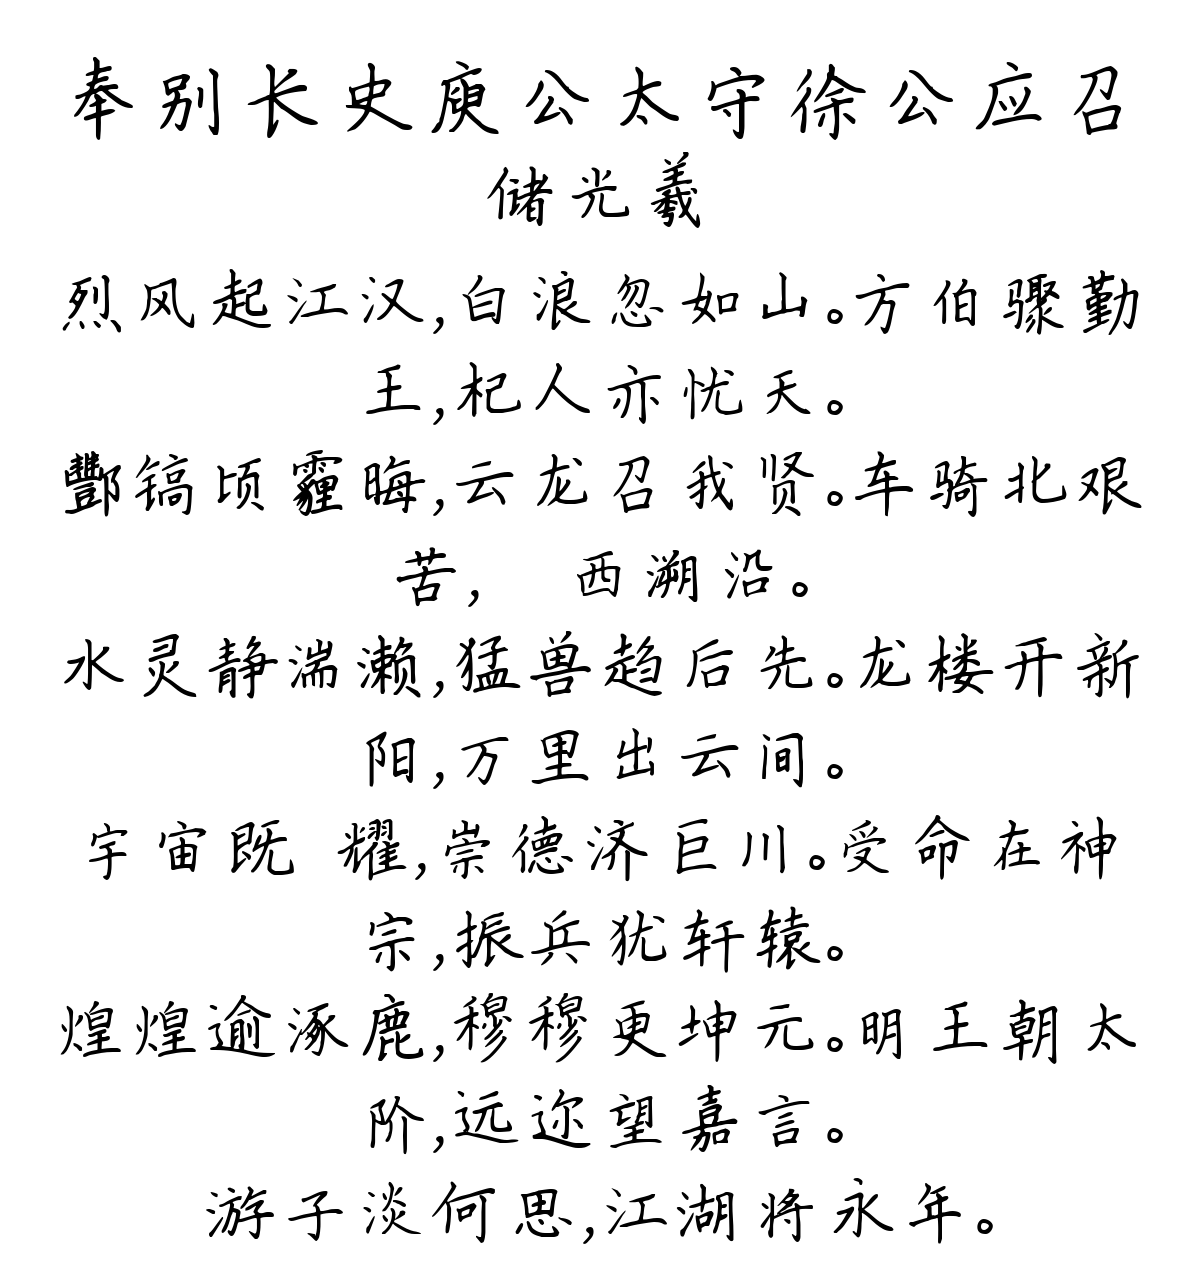 奉别长史庾公太守徐公应召
储光羲
烈风起江汉,白浪忽如山。方伯骤勤
王,杞人亦忧天。
酆镐顷霾晦,云龙召我贤。车骑北艰
苦, 西溯沿。
水灵静湍濑,猛兽趋后先。龙楼开新
阳,万里出云间。
宇宙既 耀,崇德济巨川。受命在神
宗,振兵犹轩辕。
煌煌逾涿鹿,穆穆更坤元。明王朝太
阶,远迩望嘉言。
游子淡何思,江湖将永年。